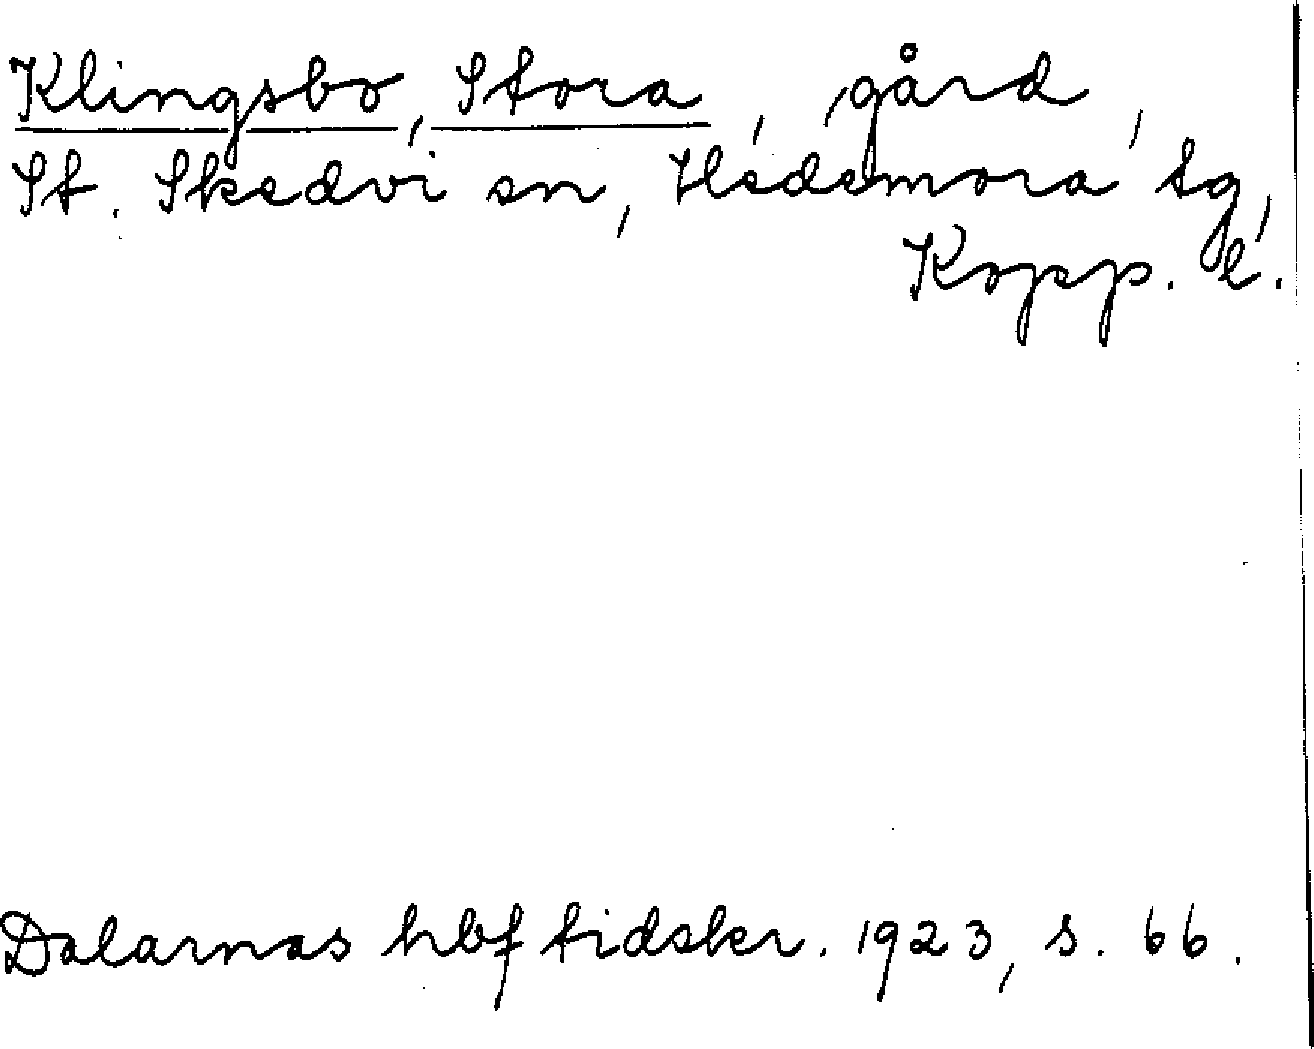 Klingsbo, Stora, gård,
St. Skedvi sn, Hedemora tg,
Kopp. l.
Dalarnas hbf tidskr. 1923, s. 66.